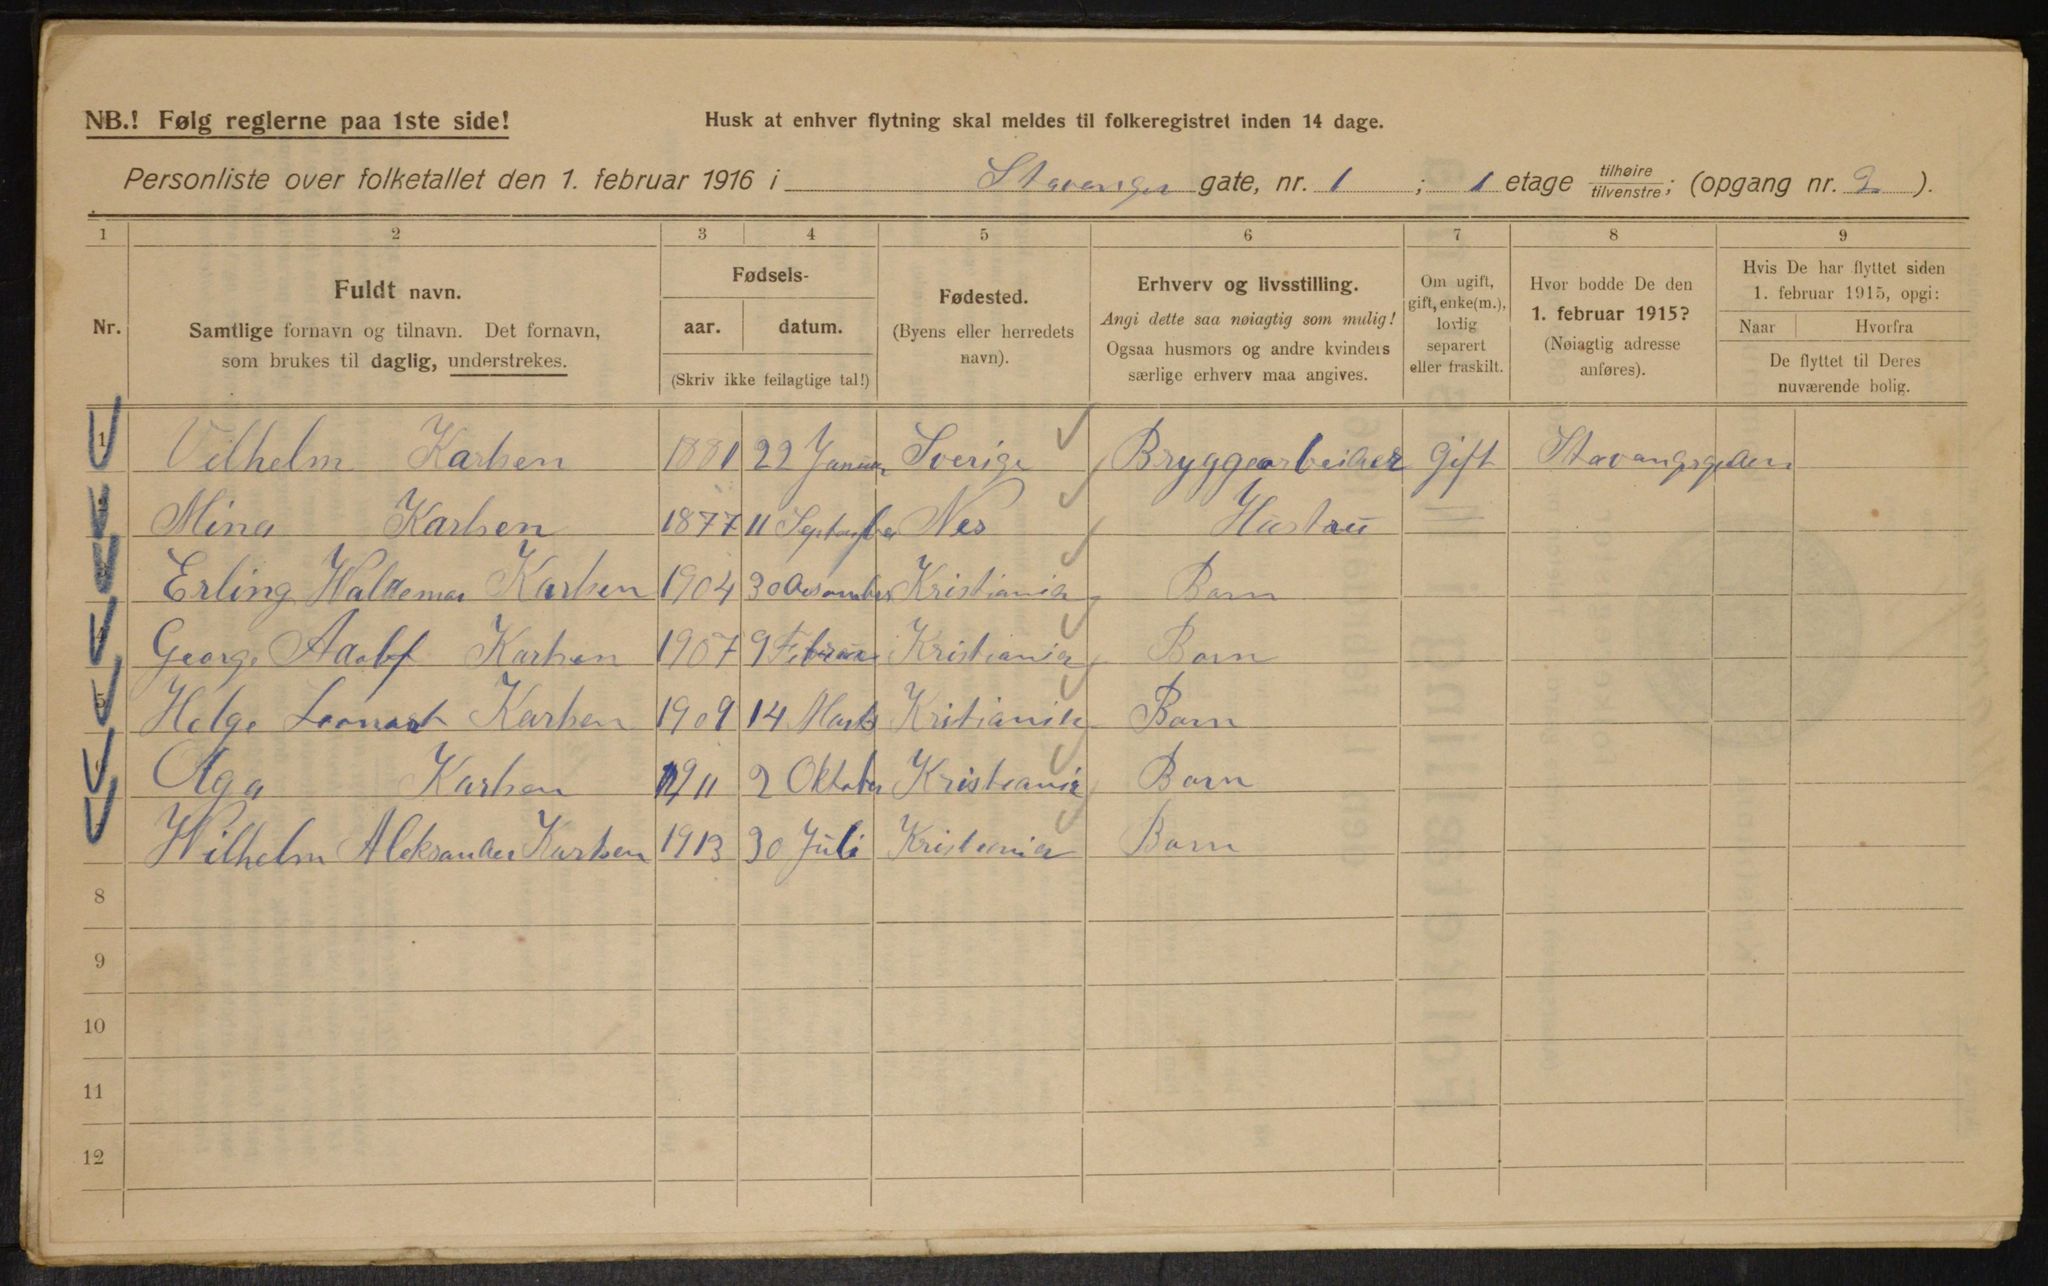 NB.! Følg reglerne paa 1ste side!
Husk at enhver flytning skal meldes til folkeregistret inden 14 dage.
Personliste over folketallet den 1. februar 1916 i Stavanger gate, nr. 1 ; 1 etage tilhøire tilvenstre; (opgang nr. 2 ).
1 2 3 4 5 6 7 8 9
Nr.
Fuldt navn.
Samtlige fornavn og tilnavn. Det fornavn,
som brukes til daglig, understrekes.
Fødsels-
aar. datum.
(Skriv ikke feilagtige tal!)
Fødested.
(Byens eller herredets
navn).
Erhverv og livsstilling.
Angi dette saa nøiagtig som mulig!
Ogsaa husmors og andre kvinders
særlige erhverv maa angives.
Om ugift,
gift, enke(m.),
lovlig
separert
eller fraskilt.
Hvor bodde De den
1. februar 1915?
(Nøiagtig adresse
anføres).
Hvis De har flyttet siden
1. februar 1915, opgi:
Naar Hvorfra
De flyttet til Deres
nuværende bolig.
1 Vilhelm Karlsen 1881 22 Januar Sverige Bryggearbeider Gift
Mina Karlsen 1877 11 Nes Hustru
Erling Waldemar Karlsen 1904 30 Kristiania Barn
George Adolf Karlsen 1907 9 Kristiania Barn
5 Helge Karlsen 1909 14 Marts Barn
Karlsen 1911 2 Oktober Kristiania Barn
Wilhelm Aleksander Karlsen 1913 30 Juli Kristiania Barn
8
9
10
11
12